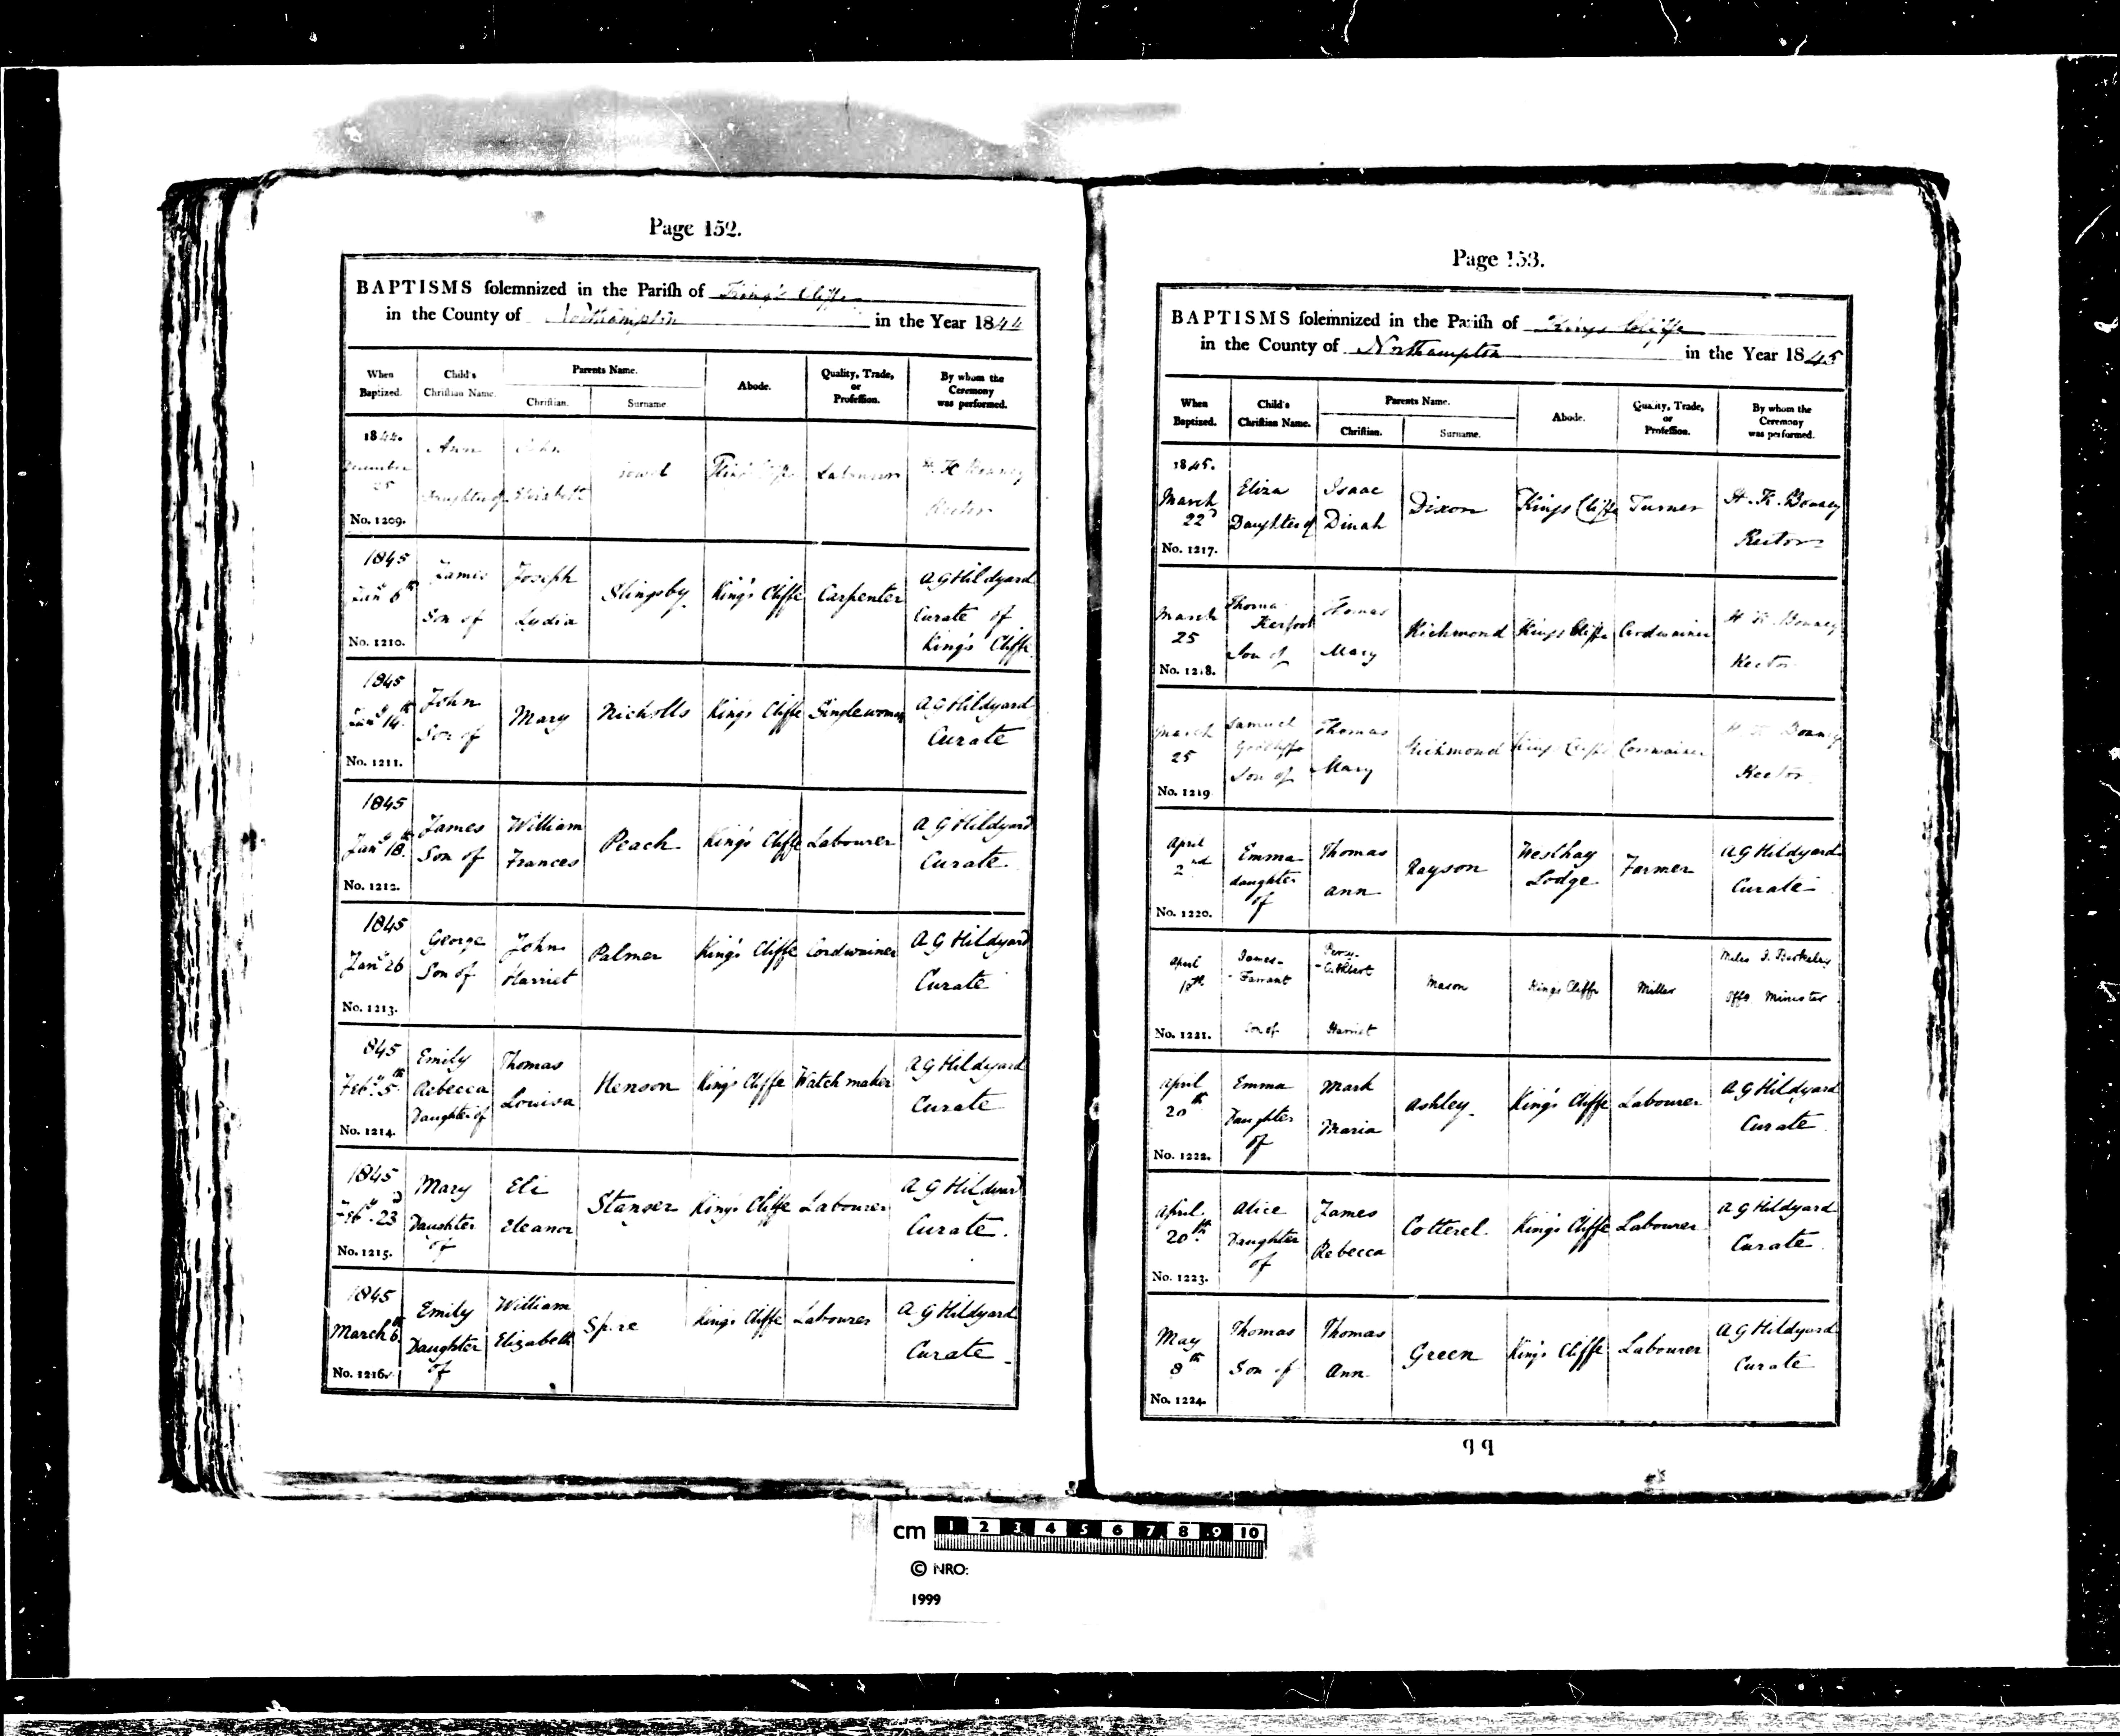 Page 152.
BAPTISMS solemnized in the Parish of King's Cliffe
in the County of Northampton in the Year 1844
When Baptized. Child's Christian Name. Parents Name. Christian. Surname Abode. Quality, Trade, or Profession. By whom the Ceremony was performed.
1844. December 25 No. 1209. Ann Daughter of John Elizabeth Labourer Rector
1845 Jany 6th No. 1210. James Son of Joseph Lydia Slingsby King's Cliffe Carpenter A G Hildyard Curate of King's Cliffe
1845 Jany 14th No. 1211. John Son of Mary Nicholls King's Cliffe Singlewoman A G Hildyard Curate
1845 Jany 18th No. 1212. James Son of William Frances Peach King's Cliffe Labourer A G Hildyard Curate
1845 Jany 26 No. 1213. George Son of John Harriet Palmer King's Cliffe Cordwainer A G Hildyard Curate
845 Feby 5th No. 1214. Emily Rebecca Daughter of Thomas Louisa Henson King's Cliffe Watch maker A G Hildyard Curate
1845 Feby 23d No. 1215. Mary Daughter of Eli Eleanor Stanger King's Cliffe Labourer A G Hildyard Curate.
1845 March 6th No. 1216. Emily Daughter of William Elizabeth King's Cliffe Labourer A G Hildyard Curate
Page 153.
BAPTISMS solemnized in the Parish of Kings Cliffe
in the County of Northampton in the Year 1845
When Baptized. Child's Christian Name. Parents Name. Christian. Surname. Abode. Quality, Trade, or Profession. By whom the Ceremony was performed.
1845. March 22d No. 1217. Eliza Daughter of Isaac Dinah Dixon Kings Cliffe Turner H. K. Bonney Rector
March 25 No. 1218. Thomas Kerfoot Son of Thomas Mary Richmond Kings Cliffe Cordwainer H K Bonney Rector
March 25 No. 1219 Samuel Son of Thomas Mary Richmond Kings Cliffe Cordwainer H K Bonney Rector
April 2nd No. 1220. Emma daughter of Thomas Ann Rayson Westhay Lodge Farmer A G Hildyard Curate
April No. 1221. James Farrant Son of Percy Cuthbert Harriet Mason Kings Cliffe Miller Minister
April 20th No. 1222. Emma Daughter of Mark Maria Ashley King's Cliffe Labourer A G Hildyard Curate
April 20th No. 1223. Alice Daughter of James Rebecca Cotterel King's Cliffe Labourer A G Hildyard Curate
May 8th No. 1224. Thomas Son of Thomas Ann Green King's Cliffe Labourer A G Hildyard Curate
cm 1 2 3 4 5 6 7 8 9 10
© NRO:
1999